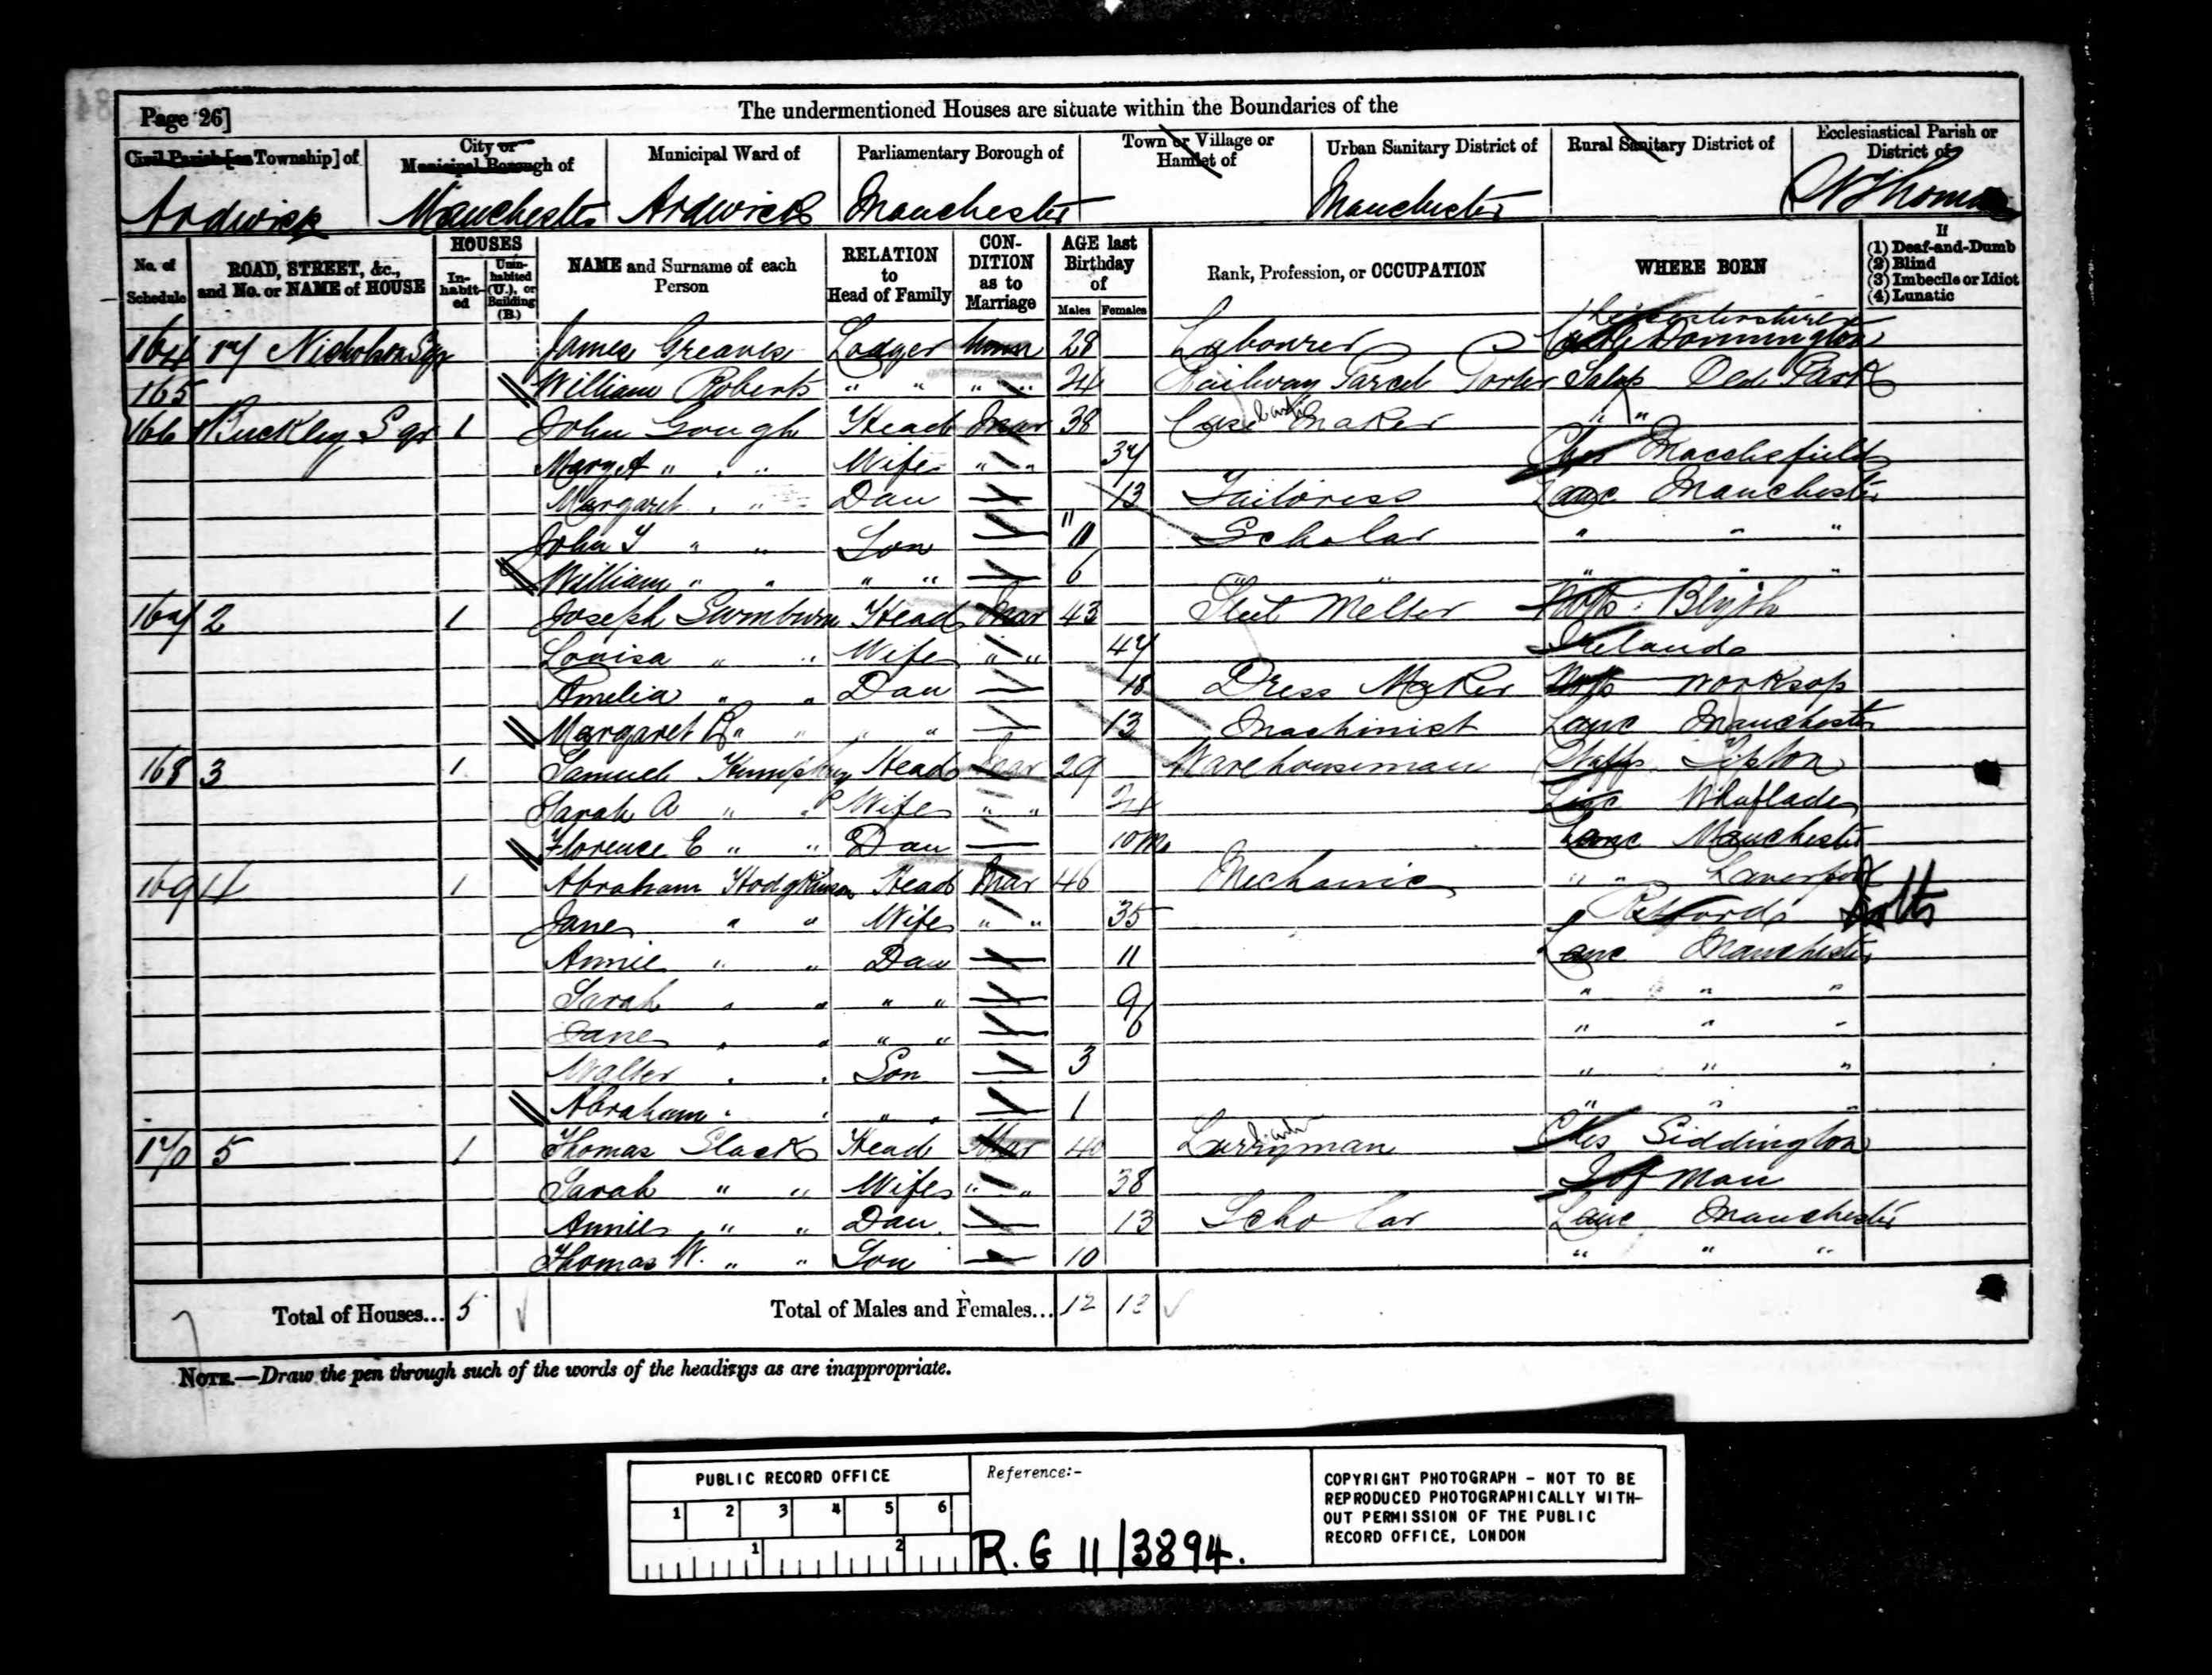 Page 26]
The undermentioned Houses are situate within the Boundaries of the
Civil Parish [or Township] of
City or Municipal Borough of
Municipal Ward of
Parliamentary Borough of
Town or Village or Hamlet of
Urban Sanitary District of
Rural Sanitary District of
Ecclesiastical Parish or District of
Ardwick Manchester Ardwick Manchester Manchester St Thomas
No. of Schedule
ROAD, STREET, &c., and No. or NAME of HOUSE
HOUSES
In-habit-ed
Unin-habited (U.), or Building (B.)
NAME and Surname of each Person
RELATION to Head of Family
CON-DITION as to Marriage
AGE last Birthday of
Males Females
Rank, Profession, or OCCUPATION
WHERE BORN
If
(1) Deaf-and-Dumb
(2) Blind
(3) Imbecile or Idiot
(4) Lunatic
Leicestershire
164 17 Nicholson Sqr James Greaves Lodger 28 Labourer Castle Donnington
165 William Roberts " " " " 24 Railway Parcel Porter Salop Old Park
166 Buckley Sqr 1 John Gough Head Mar 38 Case Maker " "
Mary A " " Wife " " 37 Ches Macclesfield
Margaret " " Dau 13 Tailoress Lanc Manchester
John T " " Son 11 Scholar " " "
William " " " " 6 " " " " "
167 2 1 Joseph Head Mar 43 Melter Notts Blyth
Louisa " " Wife " " 47 Ireland
Amelia " " Dau 18 Dress Maker Notts Worksop
Margaret " " " " 13 Machinist Lanc Manchester
168 3 1 Samuel Humphrey Head Mar 29 Warehouseman Staffs Tipton
Sarah A " " Wife " " 24
Florence E " " Dau 10m Lanc Manchester
169 4 1 Abraham Hodgkinson Head Mar 46 Mechanic " "
Jane " " Wife " " 35 Retford Notts
Annie " " Dau 11 Lanc Manchester
Sarah " " " " 9 " " "
Jane " " " " 6 " " "
Walter " " Son 3 " " "
Abraham " " " " 1 " " "
170 5 1 Thomas Slack Head Mar 40 Lurryman Ches Siddington
Sarah " " Wife " " 38 I of Man
Annie " " Dau 13 Scholar Lanc Manchester
Thomas W. " " Son 10 " " "
Total of Houses... 5
Total of Males and Females... 12 13
NOTE.—Draw the pen through such of the words of the headings as are inappropriate.
PUBLIC RECORD OFFICE
1 2 3 4 5 6
1 2
Reference:-
R.G 11/3894.
COPYRIGHT PHOTOGRAPH - NOT TO BE
REPRODUCED PHOTOGRAPHICALLY WITH-
OUT PERMISSION OF THE PUBLIC
RECORD OFFICE, LONDON